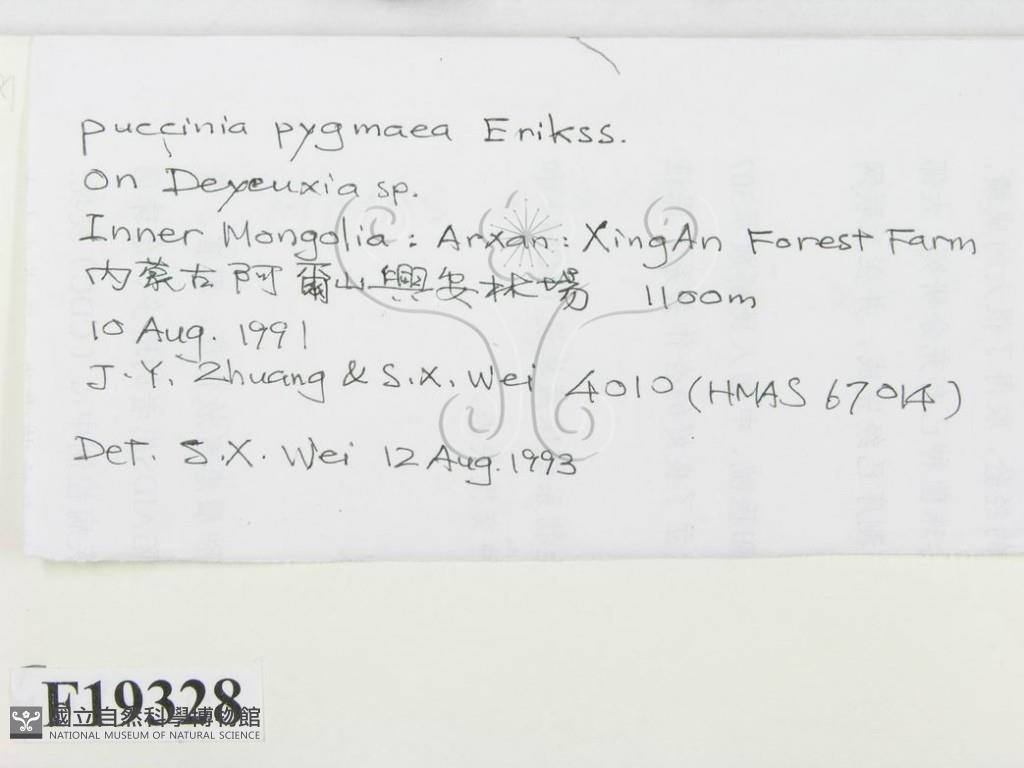 puccinia pygmaea Erikss.
on Deyeuxia sp.
Inner Mongolia : Arxan : XingAn Forest Farm
內蒙古阿爾山興安林場 1100m
10 Aug. 1991
J.Y. Zhuang & S.X. Wei 4010 (HMAS 67014)
Det. S.X. Wei 12 Aug. 1993
F19328
國立自然科學博物館
NATIONAL MUSEUM OF NATURAL SCIENCE